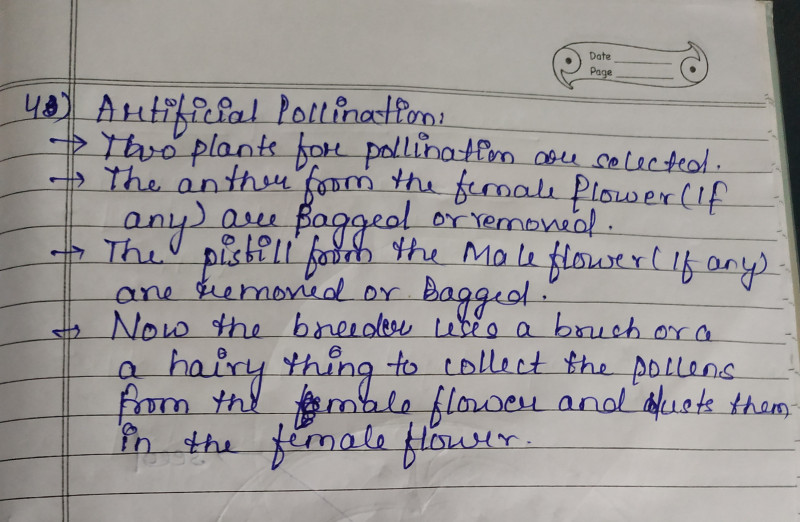 Date
Page
43) Artificial Pollination:
→ Two plants for pollination are selected.
→ The anther from the female flower (If
any) are Bagged or removed.
→ The pistill from the Male flower (If any)
are removed or Bagged.
→ Now the breeder uses a bruch or a
a hairy thing to collect the pollens
from the male flower and dusts them
in the female flower.